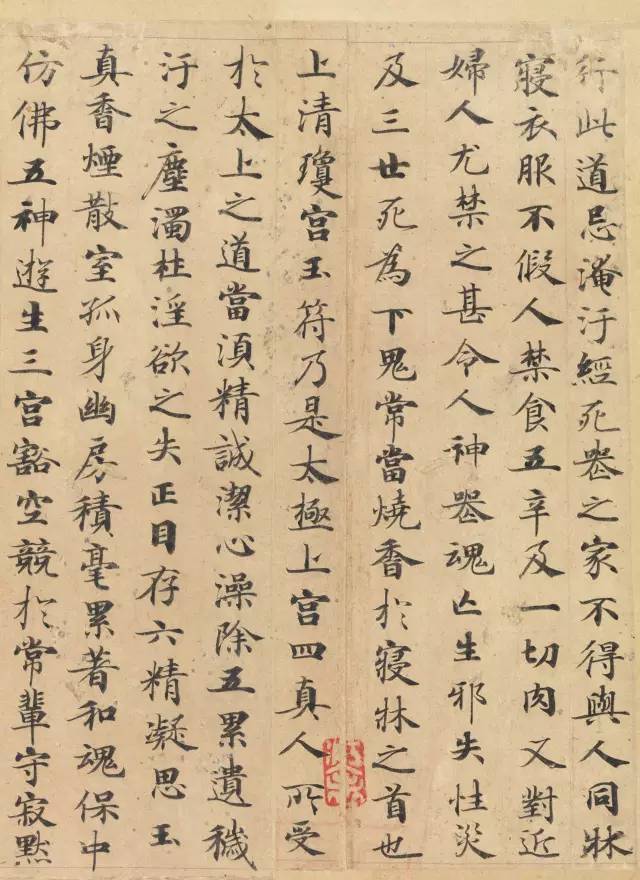 行此道忌淹汙經死䘮之家不得與人同牀
寢衣服不假人禁食五辛及一切肉又對近
婦人尤禁之甚令人神䘮魂亡生邪失性災
及三世死為下鬼常當燒香於寢牀之首也
上清瓊宮玉符乃是太極上宮四真人所受
於太上之道當須精誠潔心澡除五累遺穢
汙之塵濁杜淫欲之失正目存六精凝思玉
真香煙散室孤身幽房積毫累著和魂保中
仿佛五神遊生三宮豁空競於常輩守寂默